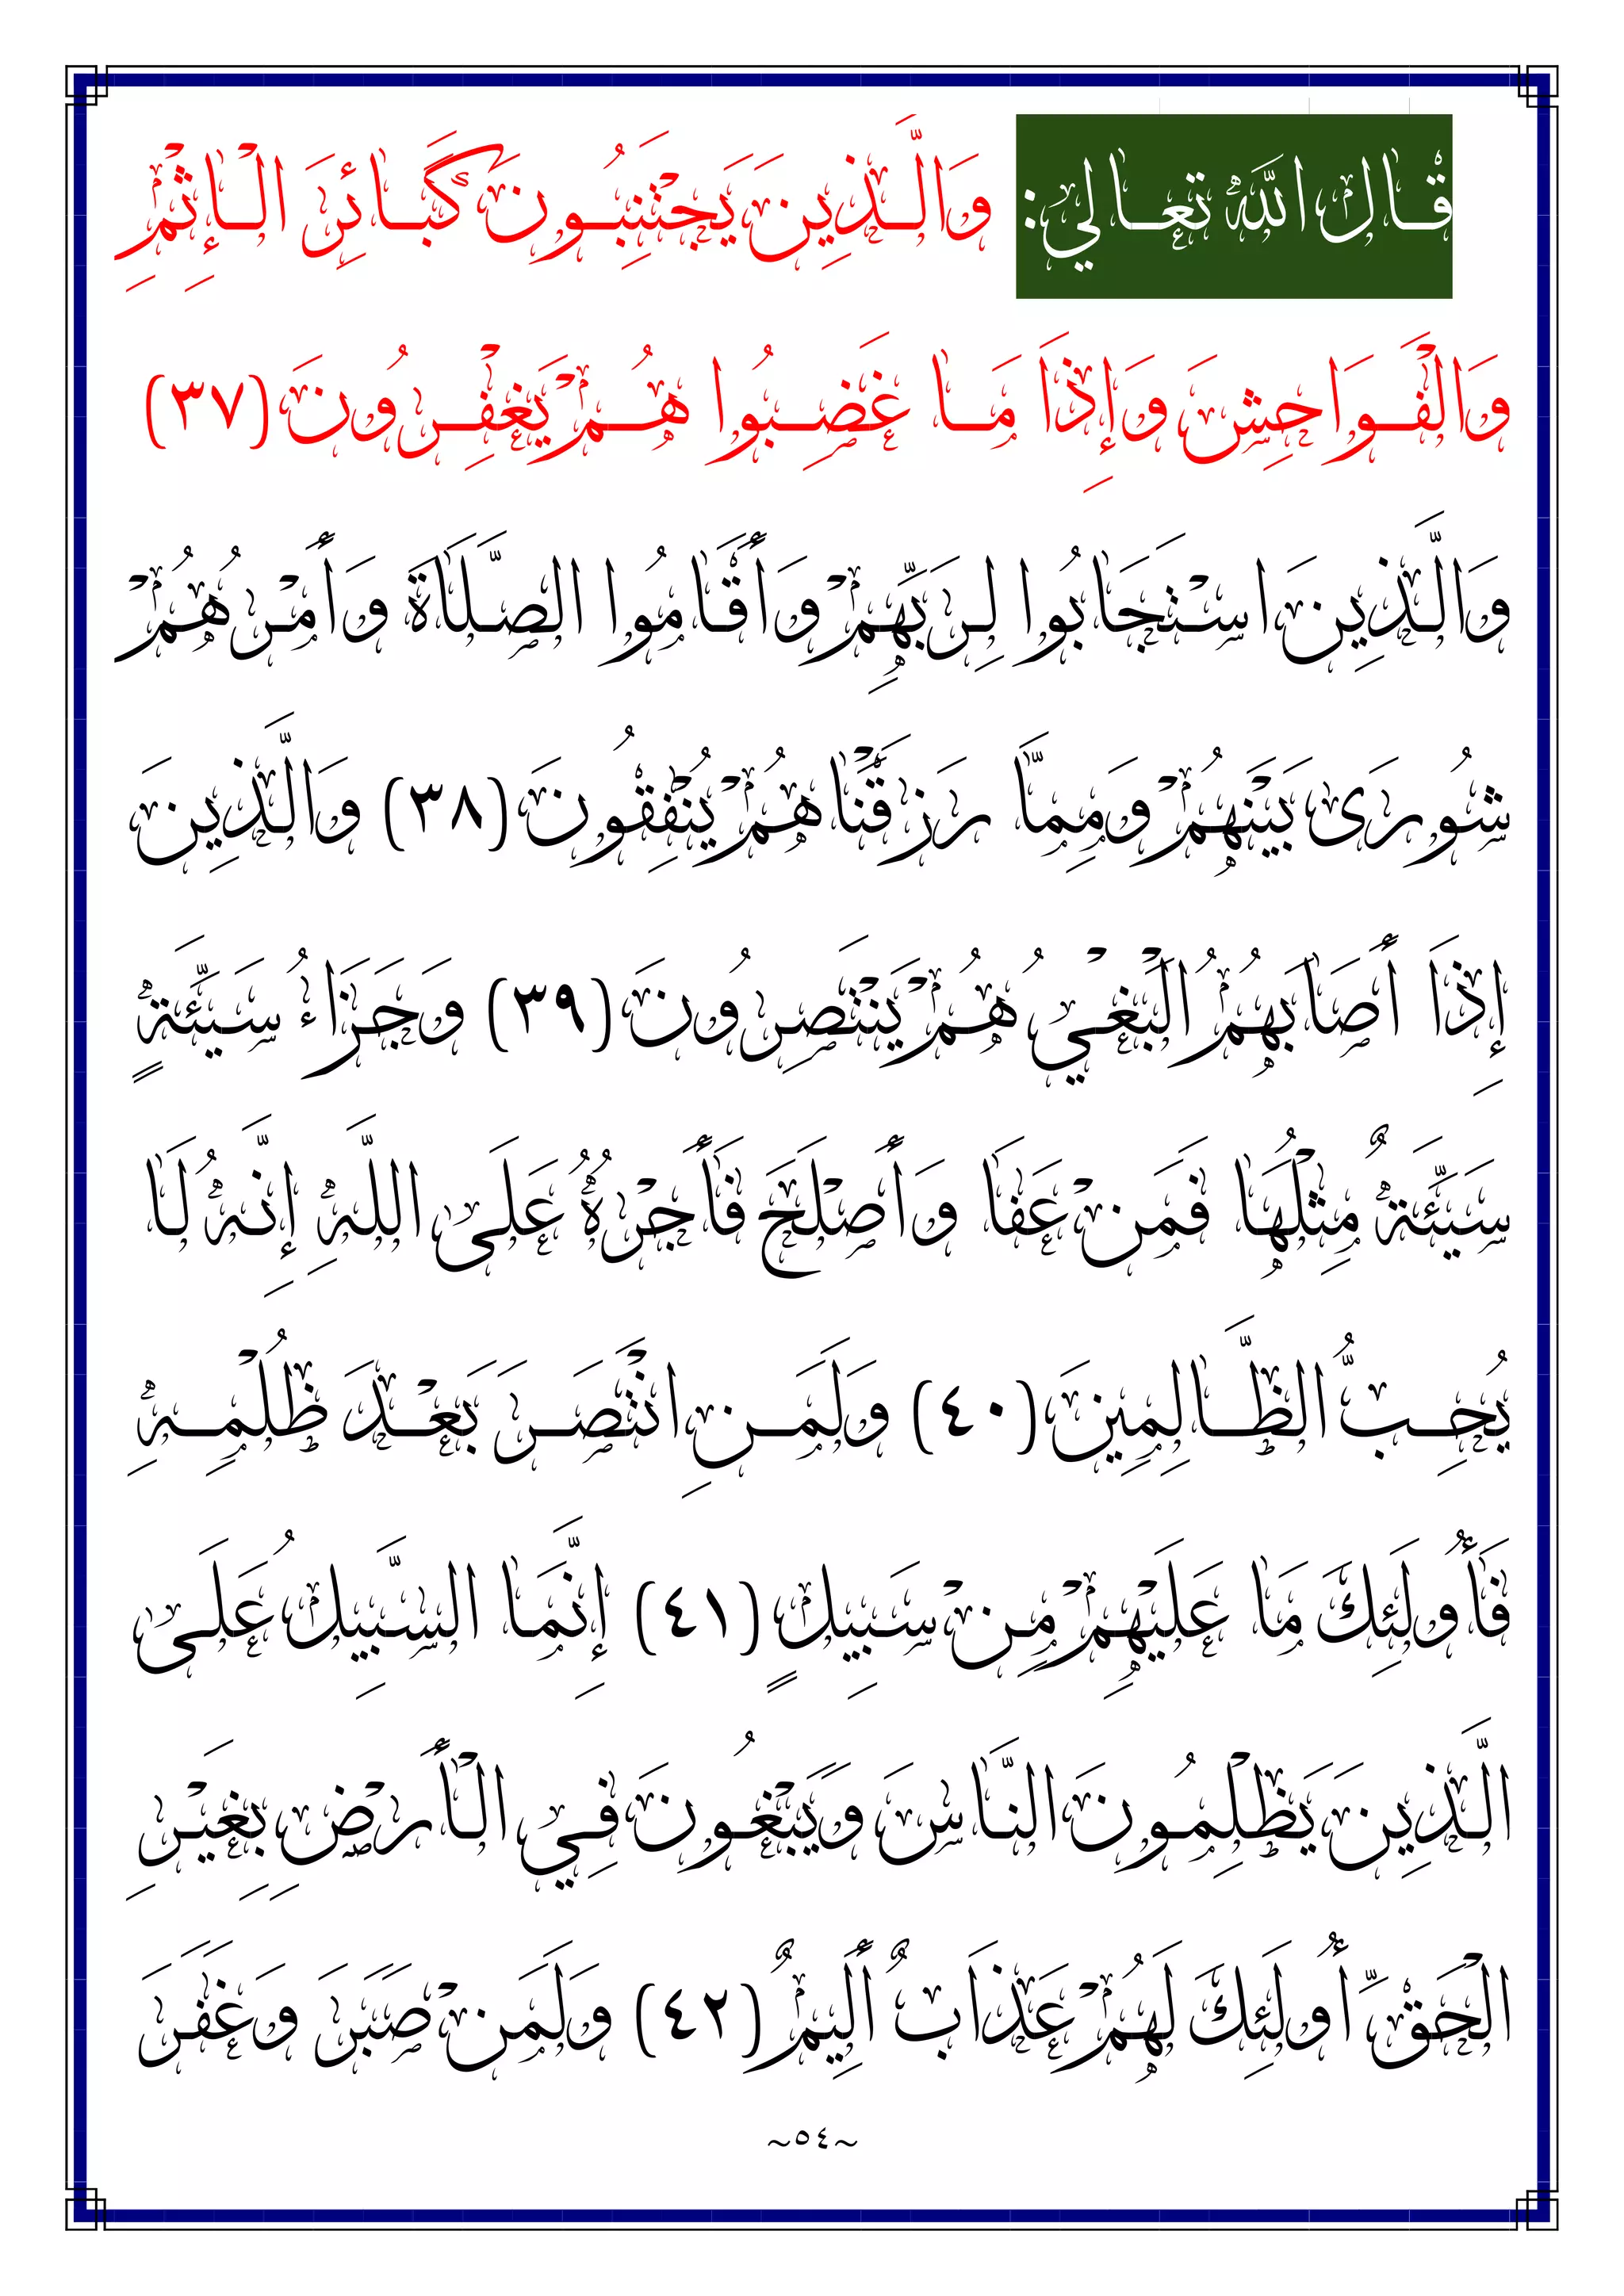 قال الله تعالي: وَالَّذِينَ يَجْتَنِبُونَ كَبَائِرَ الْإِثْمِ
وَالْفَوَاحِشَ وَإِذَا مَا غَضِبُوا هُمْ يَغْفِرُونَ (٣٧)
وَالَّذِينَ اسْتَجَابُوا لِرَبِّهِمْ وَأَقَامُوا الصَّلَاةَ وَأَمْرُهُمْ
شُورَى بَيْنَهُمْ وَمِمَّا رَزَقْنَاهُمْ يُنْفِقُونَ (٣٨) وَالَّذِينَ
إِذَا أَصَابَهُمُ الْبَغْيُ هُمْ يَنْتَصِرُونَ (٣٩) وَجَزَاءُ سَيِّئَةٍ
سَيِّئَةٌ مِثْلُهَا فَمَنْ عَفَا وَأَصْلَحَ فَأَجْرُهُ عَلَى اللَّهِ إِنَّهُ لَا
يُحِبُّ الظَّالِمِينَ (٤٠) وَلَمَنِ انْتَصَرَ بَعْدَ ظُلْمِهِ
فَأُولَئِكَ مَا عَلَيْهِمْ مِنْ سَبِيلٍ (٤١) إِنَّمَا السَّبِيلُ عَلَى
الَّذِينَ يَظْلِمُونَ النَّاسَ وَيَبْغُونَ فِي الْأَرْضِ بِغَيْرِ
الْحَقِّ أُولَئِكَ لَهُمْ عَذَابٌ أَلِيمٌ (٤٢) وَلَمَنْ صَبَرَ وَغَفَرَ
~٥٤~